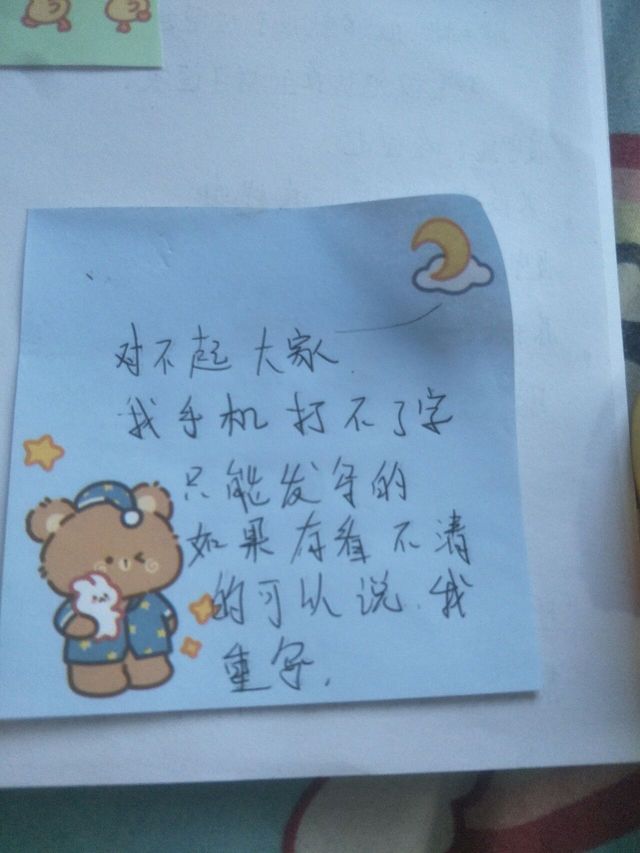 对不起大家.
我手机打不了字
只能发写的
如果有看不清
的可以说.我
重写.